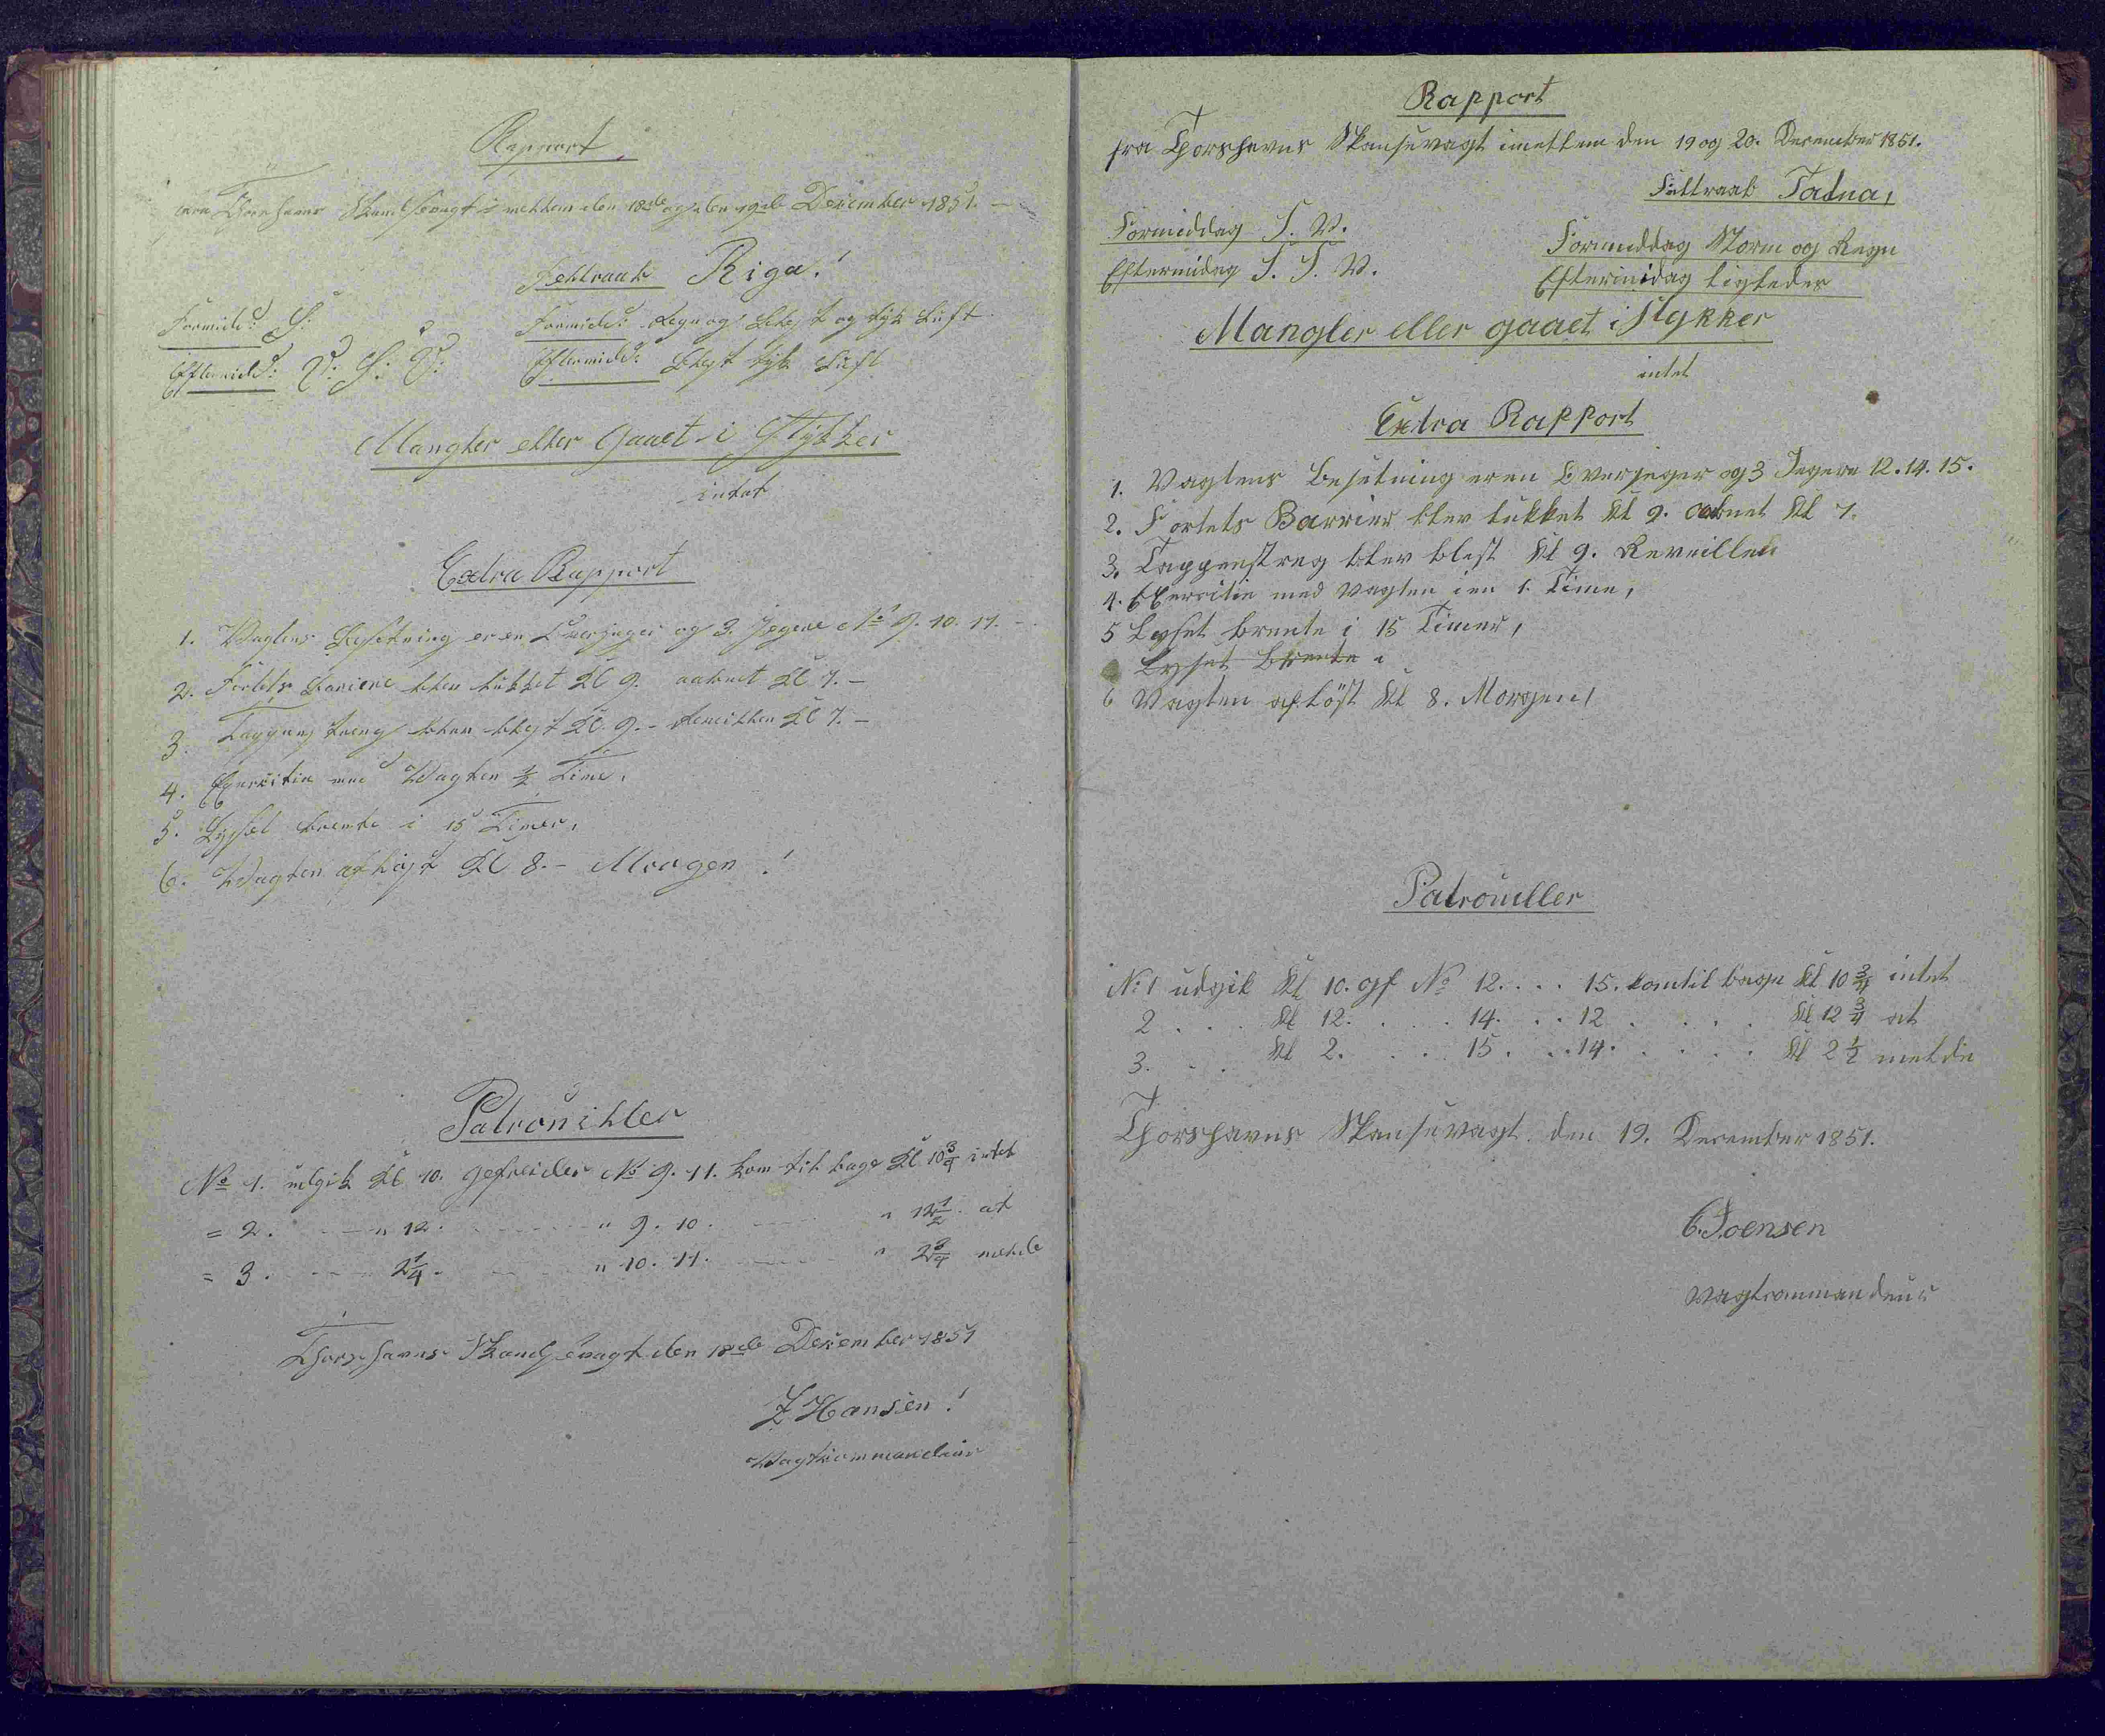 Rapport
fra Thorshavns Skandsevagt imellem den 18de og den 19de December 1851. –
Feltraab Riga!
Formidd: S:
Formidd: Regn og Blæst og tyk Luft
Eftermidd: V: S: V:
Eftermidd: Blæst tyk Luft
Mangler eller Gaaet i Stykker
intet
Extra Rapport
1. Vagtens Besetning er en Overjeger og 3. Jegere No 9. 10. 11. –
2. Fortets Bariere blev lukket Kl 9. aabnet Kl 7. –
3. Tappenstreg blev blest Kl. 9. – Reveillen Kl 7. –
4. Exercitie med Vagten ½ Time,
5. Lyset brente i 15 Timer,
6. Vagten afløst Kl 8. – Morgen!
Patrouiller
No 1. udgik Kl 10. gefreider No 9. 11. kom tilbage Kl 10¾ intet
= 2. " 12. " 9. 10. " 12½. at
= 3. " 2¼. " 10. 11. " 2¾ melde
Thorshavns Skandsevagt den 18de December 1851
Z. Hansen!
Vagtkommandeur
Rapport
fra Thorshavns Skansevagt imellem den 19 og 20. December 1851.
Feltraab Tadna,
Formiddag S. V.
Formiddag Storm og Regn
Eftermidag S. S. V.
Eftermidag ligeledes
Mangler eller gaaet i Stykker
intet
Extra Rapport
1. Vagtens Besetning er en Overjeger og 3 Jegere 12. 14. 15.
2. Fortets Barrier blev lukket Kl 9. aabnet Kl 7.
3. Tappenstreg blev blest Kl 9. Reveillen
4. Exercitie med Vagten i en 1. Time,
5 Lyset brente i 15 Timer,
Lyset brente i
6 Vagten afløst Kl 8. Morgen,
Patrouiller
No 1 udgik Kl 10. gf No 12. . . . 15. kom tilbage Kl 10¾ intet
2 . . . Kl 12. . . . 14. . . 12 . . . . Kl 12¾ at
3. . . Kl 2. . . . 15. . . 14. . . . . Kl 2½ melde
Thorshavns Skansevagt. den 19. December 1851.
C. Joensen
Vagtcommandeur